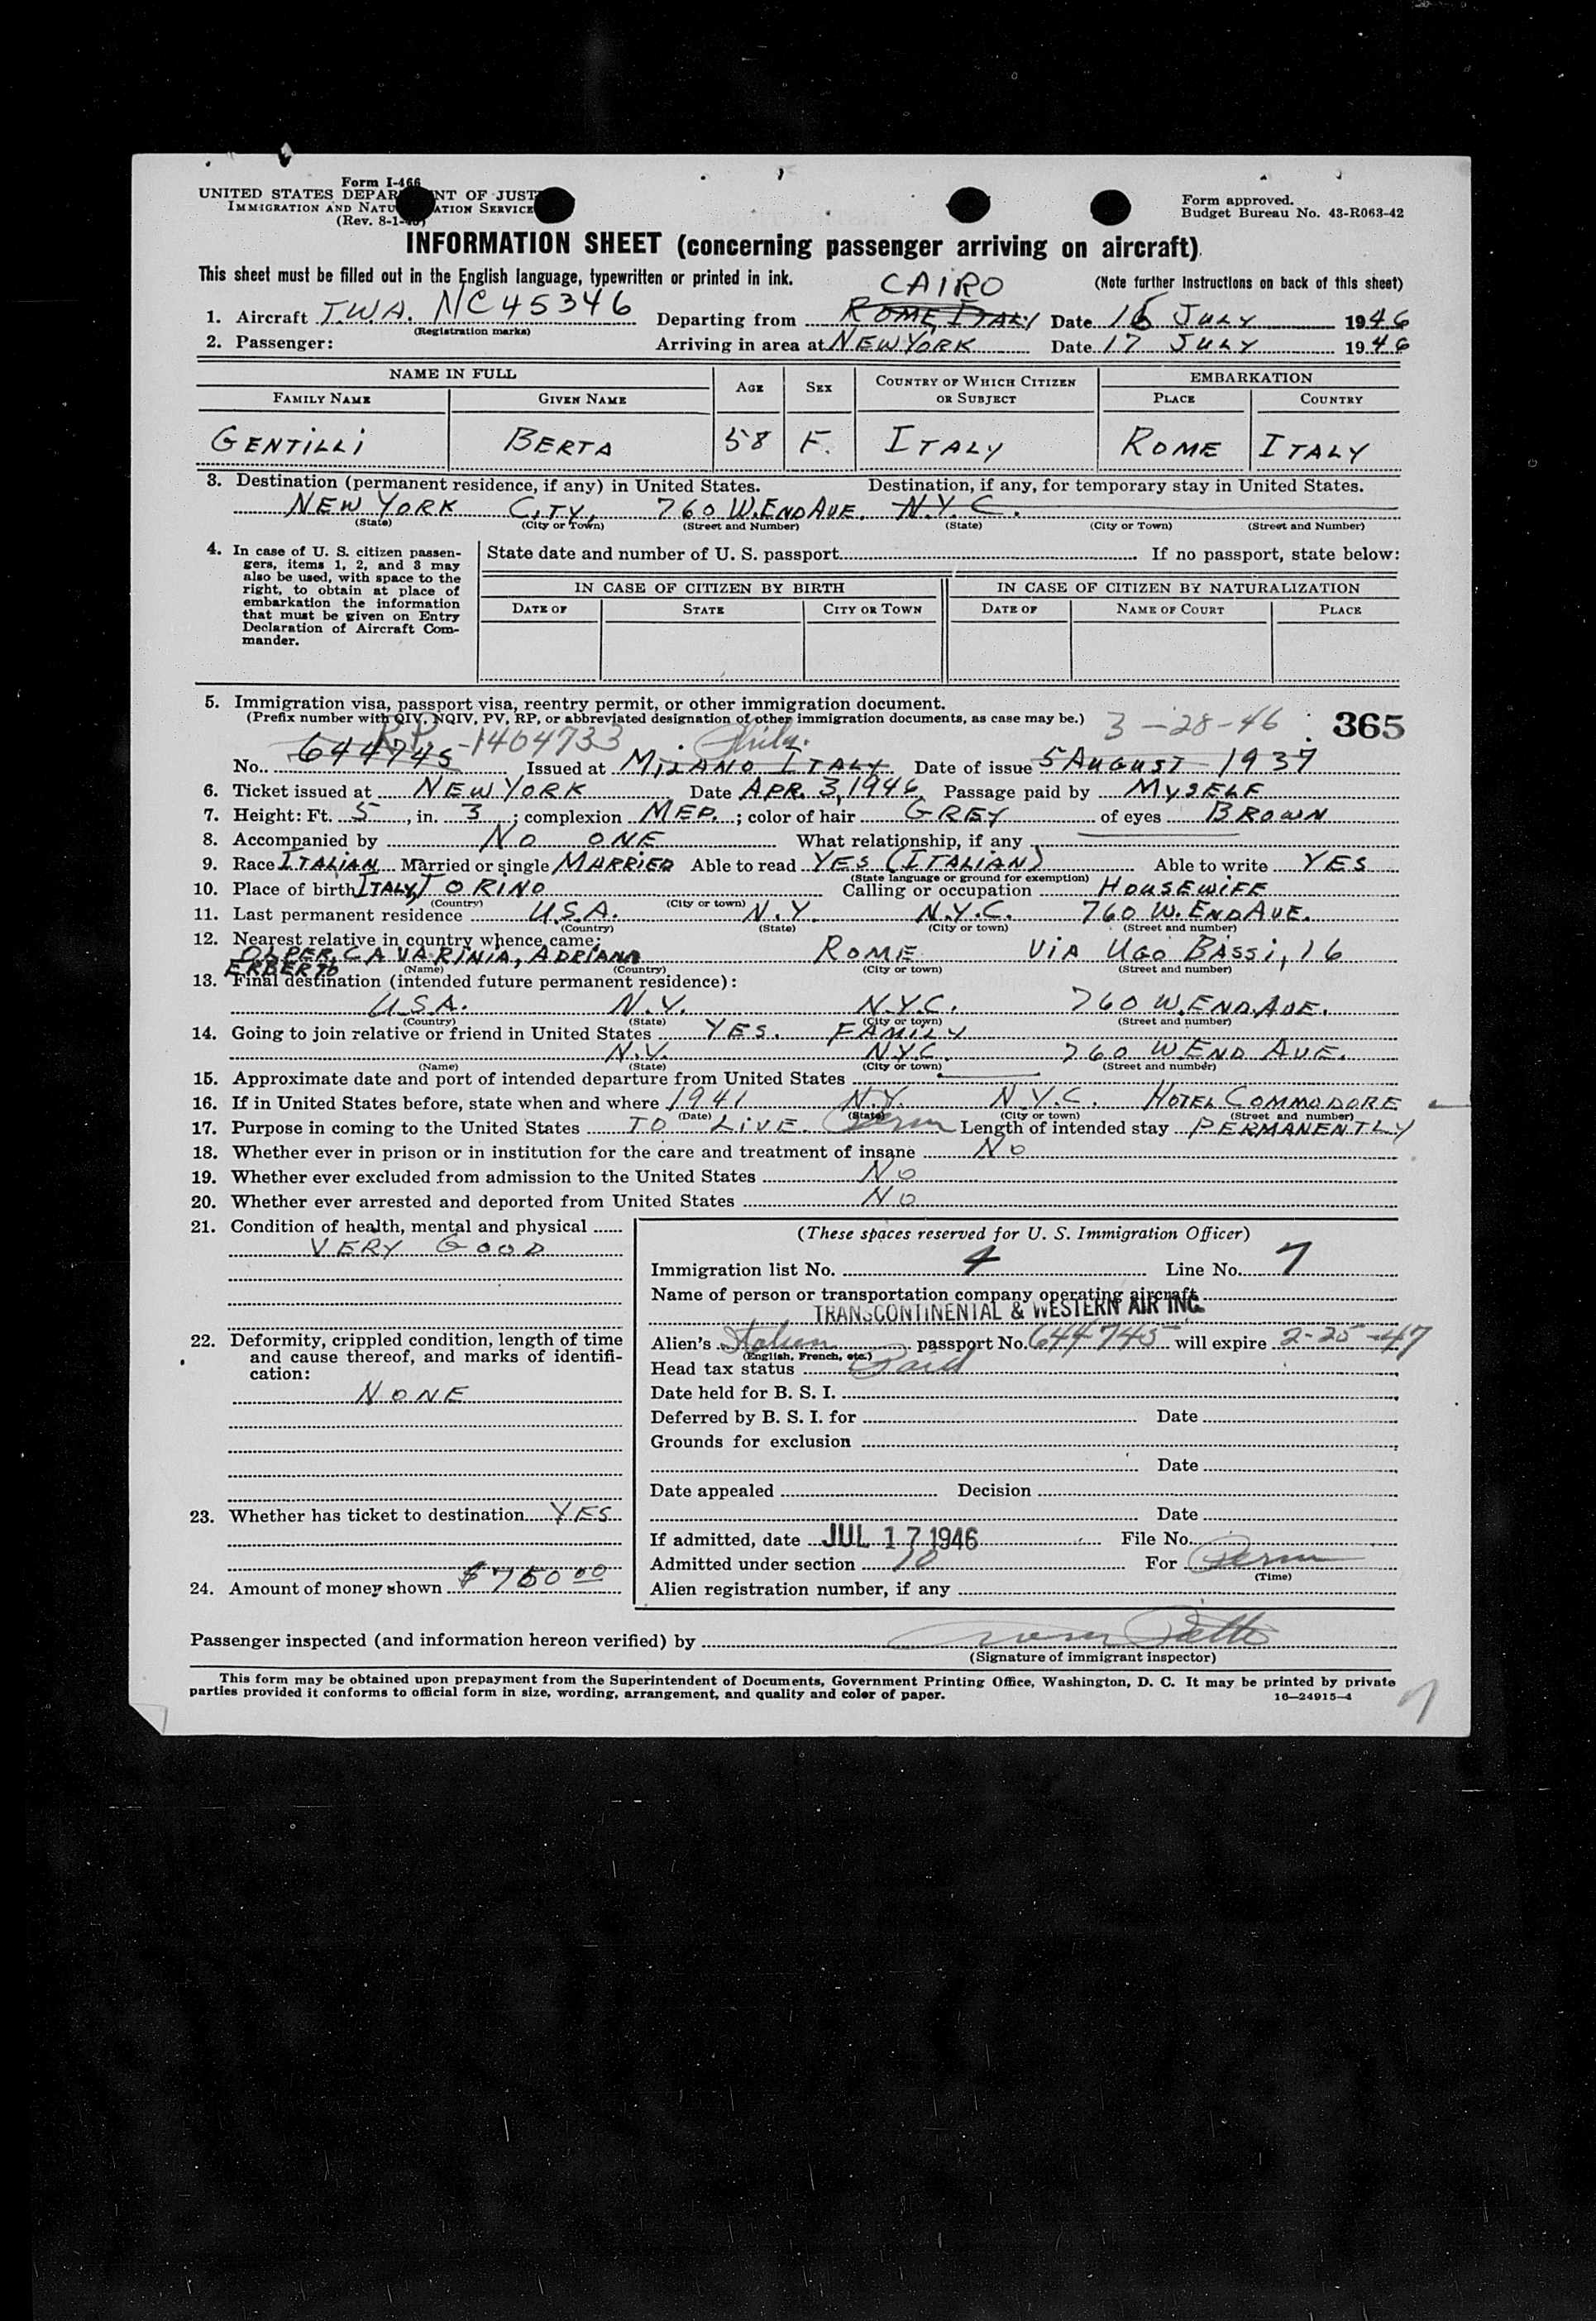 Form I-466
UNITED STATES DEPAR NT OF JUST
IMMIGRATION AND NATU ATION SERVICE
(Rev. 8-1-
Form approved.
Budget Bureau No. 43-R063-42
INFORMATION SHEET (concerning passenger arriving on aircraft)
This sheet must be filled out in the English language, typewritten or printed in ink.
(Note further instructions on back of this sheet)
CAIRO
1. Aircraft T.W.A. NC45346 Departing from ROME, ITALY Date 16 JULY 1946
(Registration marks)
2. Passenger: Arriving in area at NEW YORK Date 17 JULY 1946
NAME IN FULL AGE SEX COUNTRY OF WHICH CITIZEN OR SUBJECT EMBARKATION
FAMILY NAME GIVEN NAME PLACE COUNTRY
GENTILLI BERTA 58 F. ITALY ROME ITALY
3. Destination (permanent residence, if any) in United States. Destination, if any, for temporary stay in United States.
NEW YORK CITY, 760 W. END AVE. N.Y.C.
(State) (City or Town) (Street and Number) (State) (City or Town) (Street and Number)
4. In case of U. S. citizen passen-
gers, items 1, 2, and 3 may
also be used, with space to the
right, to obtain at place of
embarkation the information
that must be given on Entry
Declaration of Aircraft Com-
mander.
State date and number of U. S. passport If no passport, state below:
IN CASE OF CITIZEN BY BIRTH IN CASE OF CITIZEN BY NATURALIZATION
DATE OF STATE CITY OR TOWN DATE OF NAME OF COURT PLACE
5. Immigration visa, passport visa, reentry permit, or other immigration document.
(Prefix number with QIV, NQIV, PV, RP, or abbreviated designation of other immigration documents, as case may be.)
3-28-46 365
RP-1404733 Phila.
No. 644745 Issued at MILANO ITALY Date of issue 5 AUGUST 1937
6. Ticket issued at NEW YORK Date APR. 3, 1946 Passage paid by MYSELF
7. Height: Ft. 5, in. 3; complexion MED.; color of hair GREY of eyes BROWN
8. Accompanied by NO ONE What relationship, if any
9. Race ITALIAN Married or single MARRIED Able to read YES (ITALIAN) Able to write YES
(State language or ground for exemption)
10. Place of birth ITALY, TORINO Calling or occupation HOUSEWIFE
(Country) (City or town)
11. Last permanent residence U.S.A. N.Y. N.Y.C. 760 W. END AVE.
(Country) (State) (City or town) (Street and number)
12. Nearest relative in country whence came:
OLPER, CAVARINIA, ADRIANA ROME VIA UGO BASSI, 16
ERBERTO
(Name) (Country) (City or town) (Street and number)
13. Final destination (intended future permanent residence):
U.S.A. N.Y. N.Y.C. 760 W. END. AVE.
(Country) (State) (City or town) (Street and number)
14. Going to join relative or friend in United States YES. FAMILY
N.Y. N.Y.C. 760 W. END AVE.
(Name) (State) (City or town) (Street and number)
15. Approximate date and port of intended departure from United States
16. If in United States before, state when and where 1941 N.Y. N.Y.C. HOTEL COMMODORE
(Date) (State) (City or town) (Street and number)
17. Purpose in coming to the United States TO LIVE. Perm Length of intended stay PERMANENTLY
18. Whether ever in prison or in institution for the care and treatment of insane NO
19. Whether ever excluded from admission to the United States NO
20. Whether ever arrested and deported from United States NO
21. Condition of health, mental and physical
VERY GOOD
22. Deformity, crippled condition, length of time
and cause thereof, and marks of identifi-
cation:
NONE
23. Whether has ticket to destination YES
24. Amount of money shown $750 00
(These spaces reserved for U. S. Immigration Officer)
Immigration list No. 4 Line No. 7
Name of person or transportation company operating aircraft
TRANSCONTINENTAL & WESTERN AIR INC.
Alien's Italian passport No. 644745 will expire 2-25-47
(English, French, etc.)
Head tax status Paid
Date held for B. S. I.
Deferred by B. S. I. for Date
Grounds for exclusion
Date
Date appealed Decision
Date
If admitted, date JUL 17 1946 File No.
Admitted under section 10 For Perm
(Time)
Alien registration number, if any
Passenger inspected (and information hereon verified) by
(Signature of immigrant inspector)
This form may be obtained upon prepayment from the Superintendent of Documents, Government Printing Office, Washington, D. C. It may be printed by private
parties provided it conforms to official form in size, wording, arrangement, and quality and color of paper.
16—24915-4
7